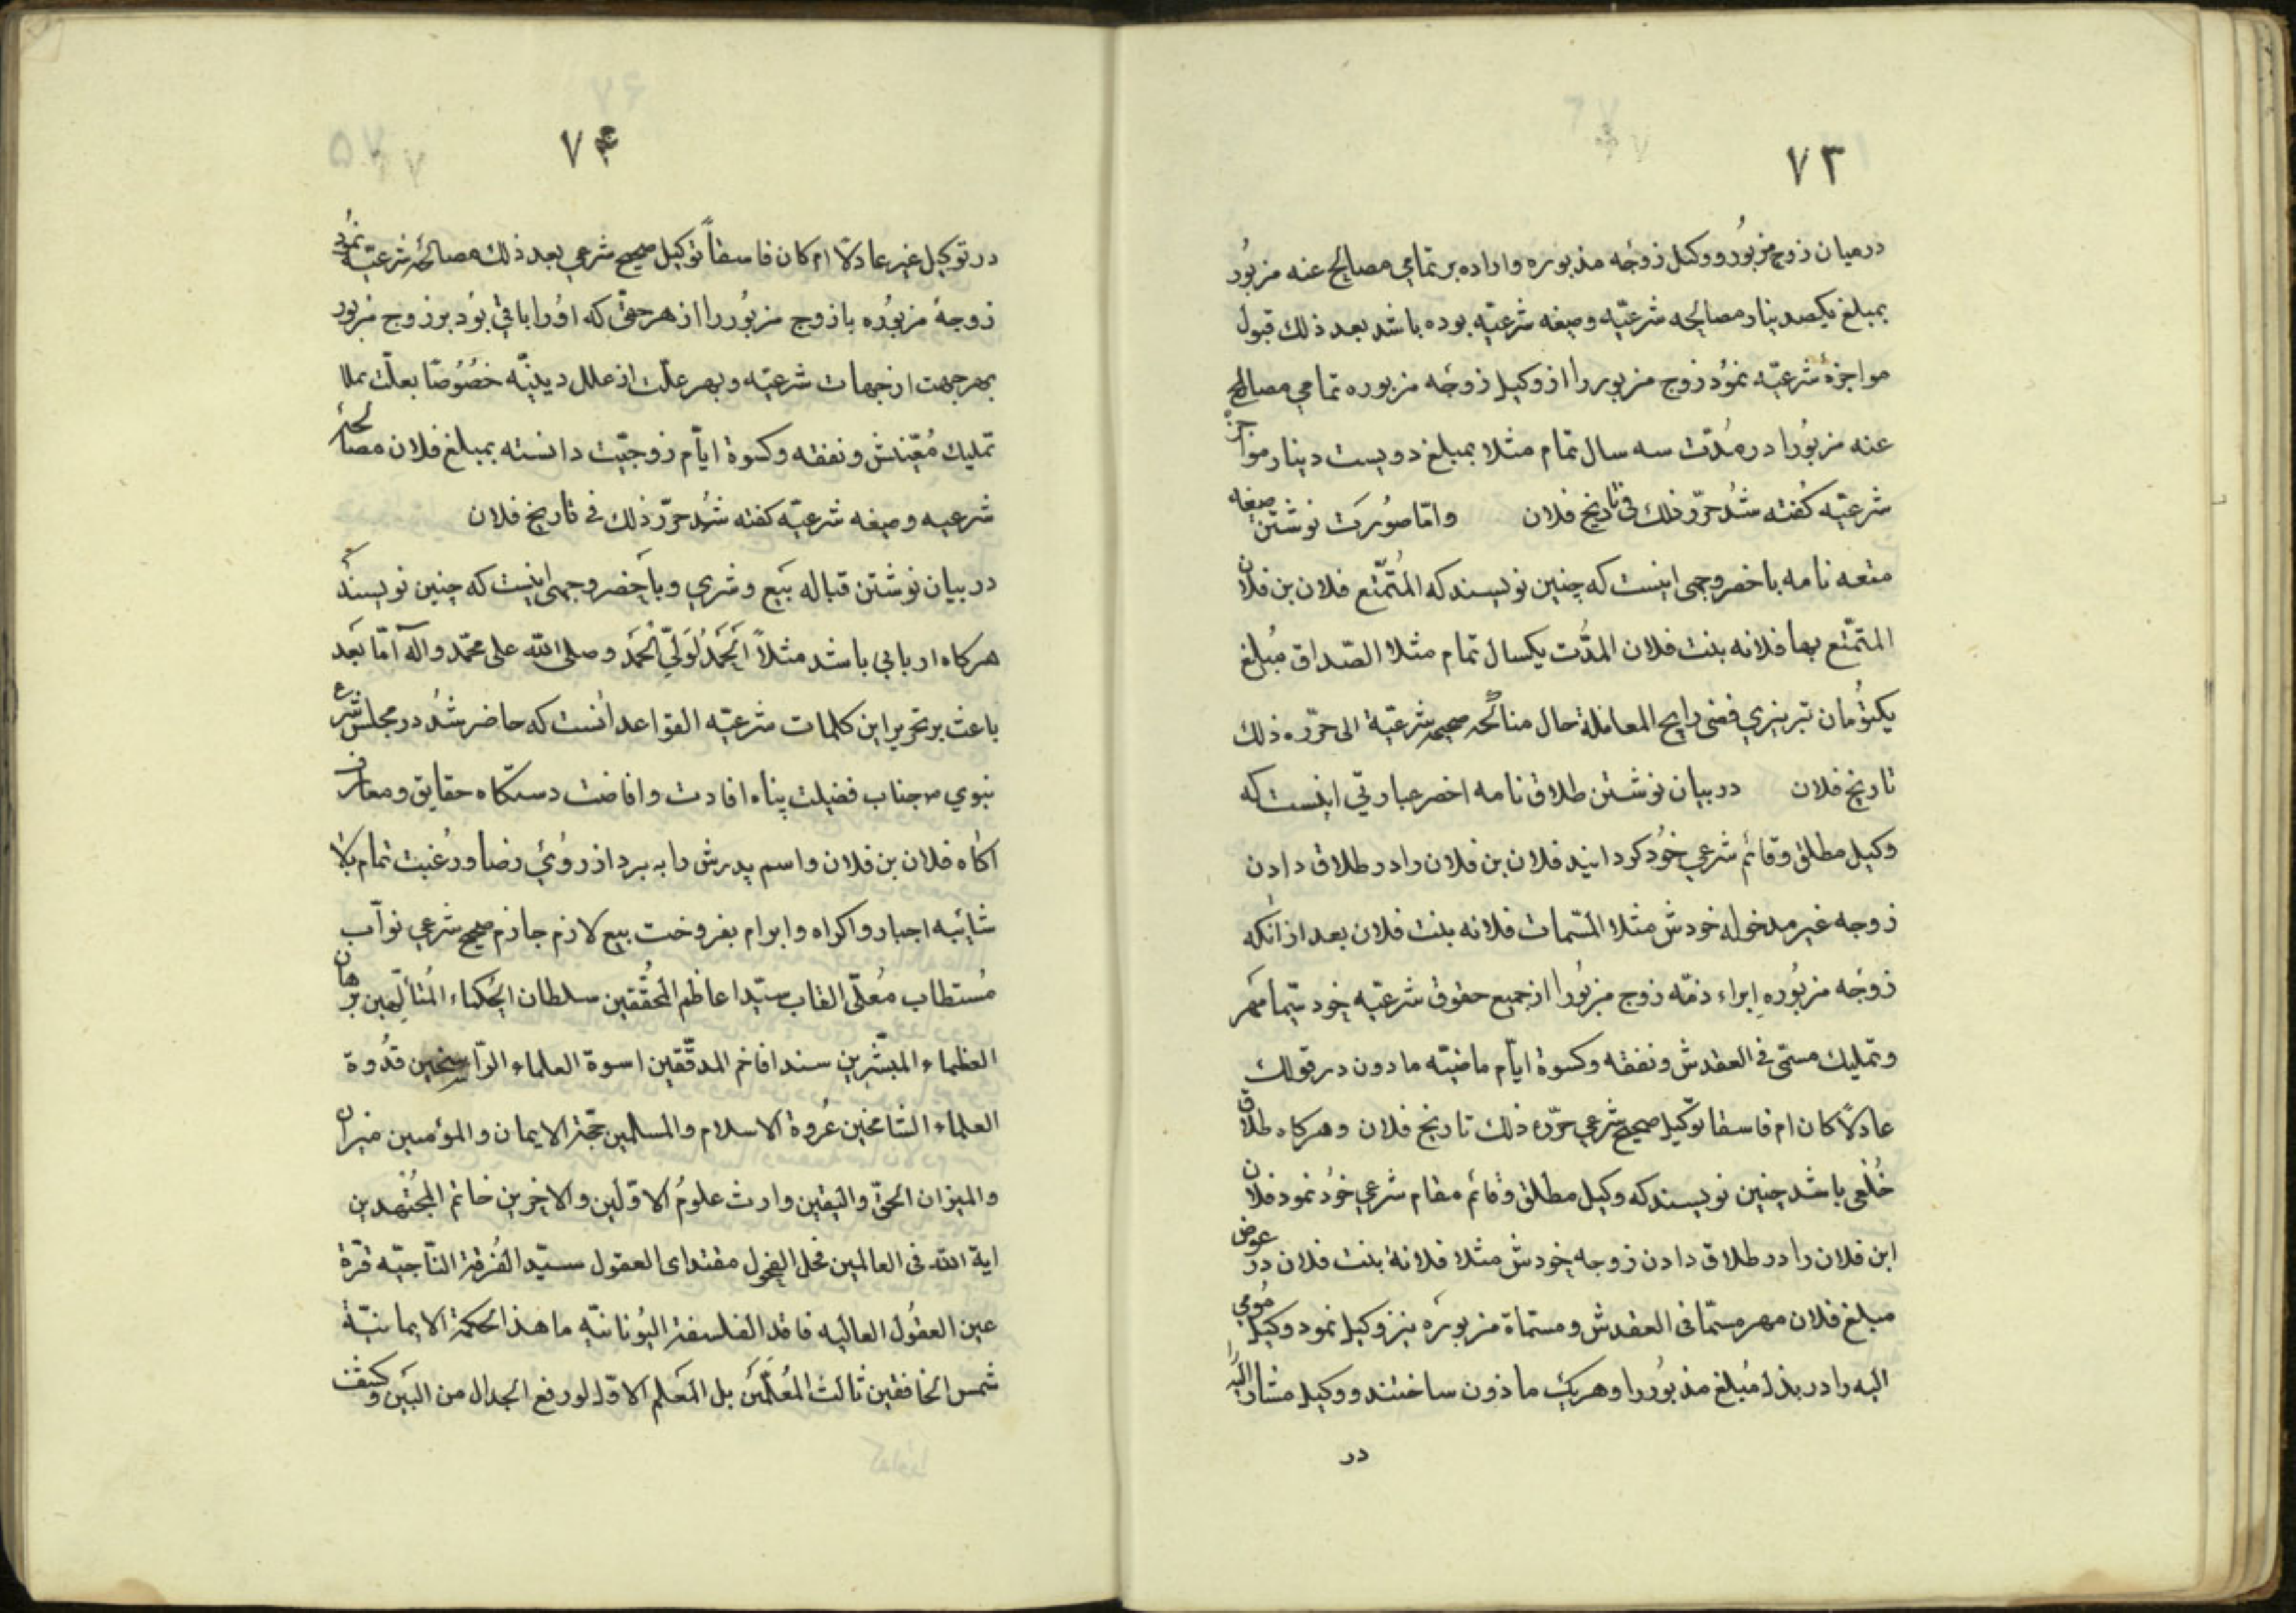 ۷۳
درمیان زوج مزبور و وکیل زوجه مذبوره واراده بر تمامی مصالح عنه مزبور
بمبلغ یکصد دینار مصالحه شرعیّه وصیغه شرعیّه بوده باشد بعد ذلك قبول
مواجزهٔ شرعیّه نمُود زوج مزبور را از وکیل زوجه مزبوره تمامی مصالح
عنه مزبُورا در مُدّت سه سال تمام مثلا بمبلغ دویست دینار مواجزهٔ
شرعیّه کُفته شُد حرّر ذلك فی تاریخ فلان وامّا صُورَت نوشتن صیغه
متعه نامه باخصر وجهی اینست که چنین نویسند که المُتمتّع فلان بن فلان
المتمتّع بها فلانه بنت فلان المدّت یکسال تمام مثلا الصّداق مُبلغ
یکتوُمان تبریزی فضی رایج المعامله حال مناکحه صحیحه شرعیّة الی حرّره ذلك
تاریخ فلان در بیان نوشتن طلاق نامه اخصر عبارتی اینست که
وکیل مطلق وقائم شرعی خُود کردانید فلان بن فلان را در طلاق دادن
زوجه غیر مدخوله خودش مثلا المسّمات فلانه بنت فلان بعد از انکه
زوجه مزبُوره ابراء ذمّه زوج مزبُورا از جمیع حقوق شرعیّه خود سیّما مهر
وتملیك مسمّی فی العقدش ونفقه وکسوة ایّام ماضیّه مادون در قولك
عادلًا کان ام فاسقا توکیل صحیح شرعی حرّره ذلك تاریخ فلان وهرکاه طلاق
خُلعی باشد چنین نویسند که وکیل مطلق وقائم مقام شرعی خُود نمود فلان
ابن فلان را در طلاق دادن زوجه خودش مثلا فلانهٔ بنت فلان در عوض
مبلغ فلان مهر مسمّا فی العقدش ومسمّاة مزبوره نیز وکیل نمود وکیل مُومی
الیه را در بذل مُبلغ مذبُور را وهریك ماذون ساختند ووکیل مشار الیه را
در
۷۴
در توکیل غیر عادلًا ام کان فاسقاً توکیل صحیح شرعی بعد ذلك مصالحه شرعیّه نمُود
زوجهٔ مزبُوره با زوج مزبُور را از هر حقّی که اوُرا باقی بُود بر زوج مزبور
بهر جهت از جهات شرعیّه وبهر علّت از علل دینیّه خصُوصًا بعلّت
تملیك مُعیّنش ونفقه وکسوة ایّام زوجیّت دانسته بمبلغ فلان مصالحهٔ
شرعیه وصیغه شرعیّه کفته شُد حرّر ذلك فی تاریخ فلان
در بیان نوشتن قباله بَیع وشری وباخصر وجهی اینست که چنین نویسند که
هرکاه اربابی باشد مثلاً اَلحَمدُ لِوَلیّ الحَمد وصلی اللّه علی محمّد وآله امّا بَعد
باعث بر تحریر این کلمات شرعیّه القواعد آنست که حاضر شُد در مجلس شرع
نبوی ص جناب فضیلت پناه افادت وافاضت دستکاه حقایق ومعارف
اکاه فلان بن فلان واسم پدرش را به برد از روُی رضا ورغبت تمام بلا
شائبه اجبار واکراه وابرام بفروخت ببیع لازم جازم صحیح شرعی نوّاب
مُستطاب مُعلّی القاب سیّد اعاظم المُحقّقین سلطان الحُکماء المُتألّهین برهان
العظماء المبشّرین سند افاخم المدقّقین اسوة العلماء الرّاسخین قدُوة
العلماء الشامخین عُروة الاسلام والمسلمین حجّة الایمان والمؤمنین میزان
والمیزان الحقّ والیَقین وارث علومُ الاوّلین والاخرین خاتم المجُتهدین
ایة اللّه فی العالمین فحل الفحول مقتدای العقول سیّد الفُرقة النّاجیّه قرّة
عین العقوُل العالیه فاقد الفلسفة الیوُنانیّه ماهذ الحکمة الایمانیّة
شمس الخافقین ثالث المُعلّمَین بل المَعلم الاوّل لو رفع الجدال من البَین وکیف